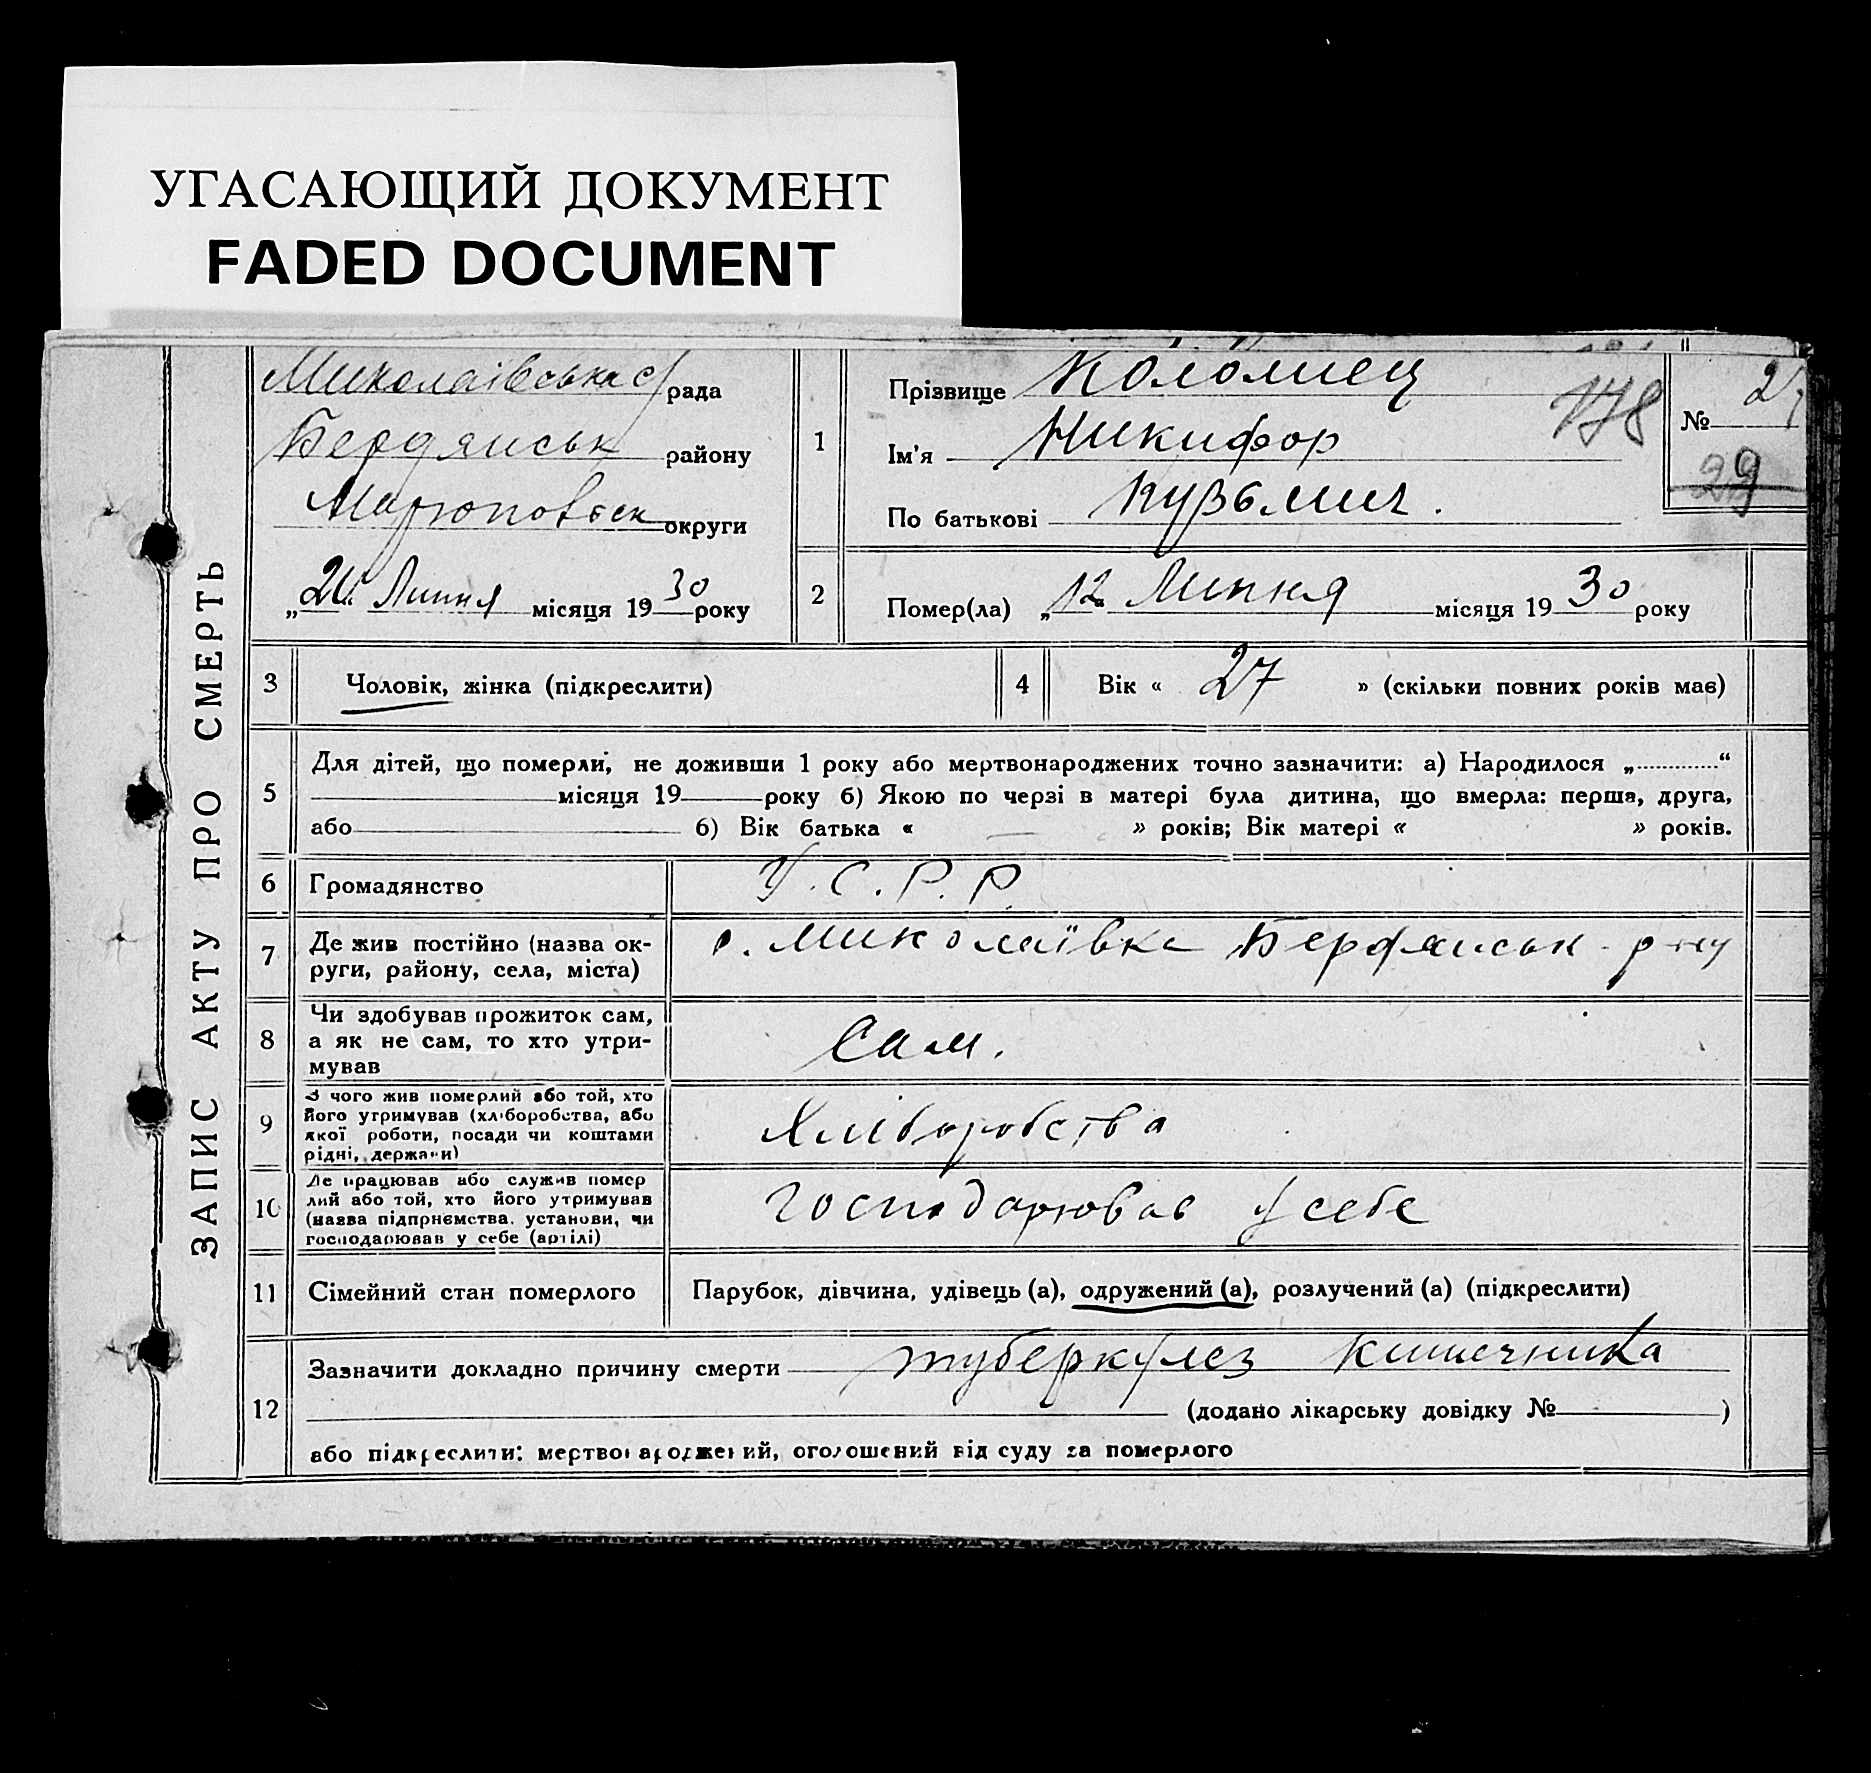 УГАСАЮЩИЙ ДОКУМЕНТ
FADED DOCUMENT
ЗАПИС АКТУ ПРО СМЕРТЬ
Миколаівська с/рада
Бердянськ району
округи
„ “ Липня місяця 1930 року
1
Прізвище Коломиец
Ім'я Никифор
По батькові Кузьмич.
178
№ 2
29
2
Помер(ла) „12“ Липня місяця 1930 року
3 Чоловік, жінка (підкреслити)
4 Вік « 27 » (скільки повних років має)
5
Для дітей, що померли, не доживши 1 року або мертвонароджених точно зазначити: а) Народилося „............“
місяця 19 року б) Якою по черзі в матері була дитина, що вмерла: перша, друга,
або б) Вік батька « — » років; Вік матері « » років.
6 Громадянство У.С.Р.Р.
7
Де жив постійно (назва ок-
руги, району, села, міста)
с. Миколаївка Бердянськ р-ну
8
Чи здобував прожиток сам,
а як не сам, то хто утри-
мував
Сам.
9
З чого жив померлий або той, хто
його утримував (хліборобства, або
якої роботи, посади чи коштами
рідні, держави)
Хліборобства
10
Де працював або служив помер
лий або той, хто його утримував
(назва підприємства, установи, чи
господарював у себе (артілі)
Господарював у себе
11 Сімейний стан померлого Парубок, дівчина, удівець (а), одружений (а), розлучений (а) (підкреслити)
12
Зазначити докладно причину смерти туберкулез кишечника
(додано лікарську довідку № )
або підкреслити: мертвонароджений, оголошений від суду за померлого